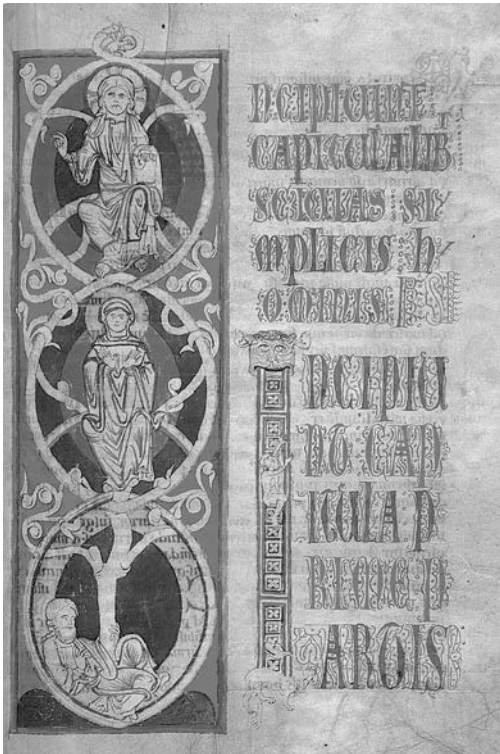 NCIPIUNT
CAPITULA LIB
SCIVIAS SI
MPLICIS H
OMINIS
INCIPIU
NT CAP
ITULA P
RIME P
ARTIS